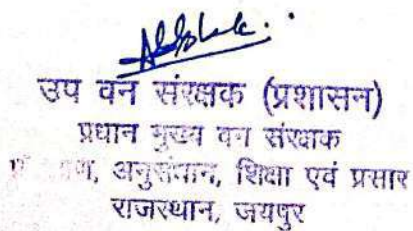 उप वन संरक्षक (प्रशासन)
प्रधान मुख्य वन संरक्षक
अनुसंधान, शिक्षा एवं प्रसार
राजस्थान, जयपुर